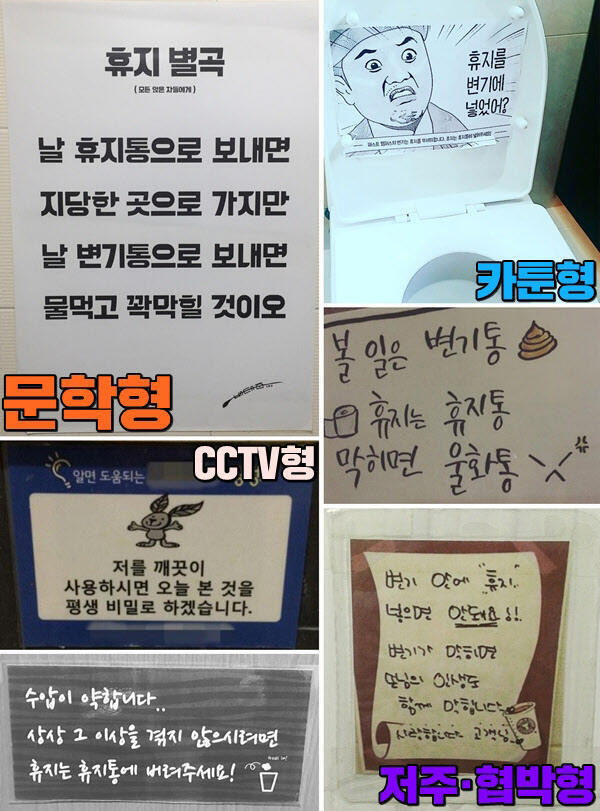 휴지 별곡
( 모든 앉은 자들에게 )
날 휴지통으로 보내면
지당한 곳으로 가지만
날 변기통으로 보내면
물먹고 꽉막힐 것이오
문학형
휴지를
변기에
넣었어?
카툰형
볼 일은 변기통
휴지는 휴지통
막히면 울화통
CCTV형
알면 도움되는
저를 깨끗이
사용하시면 오늘 본 것을
평생 비밀로 하겠습니다.
변기 안에 "휴지"
넣으면 안돼요!!
변기가 막히면
손님의 인생도
함께 막힙니다
사랑합니다 고객님
저주·협박형
수압이 약합니다..
상상 그 이상을 겪지 않으시려면
휴지는 휴지통에 버려주세요!